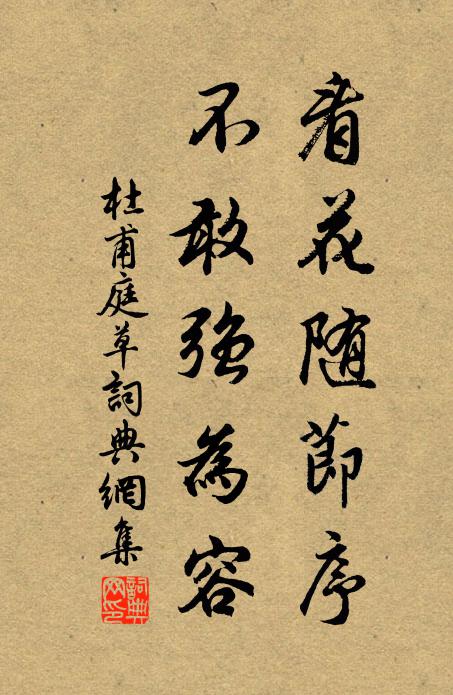 看花随節序
不敢強為容
杜甫庭草詞典網集
詞典網印